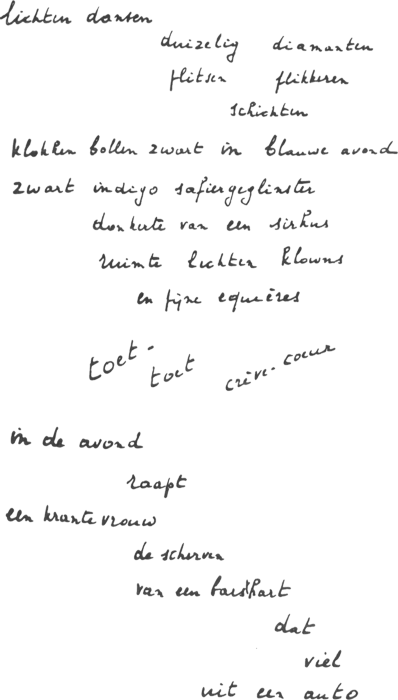 lichten dansen
duizelig diamanten
flitsen flikkeren
schichten
klokken bollen zwart in blauwe avond
zwart indigo safiergeglinster
donkerte van een sirkus
ruimte lichten klowns
en fijne equières
toet-
toet crève-coeur
in de avond
raapt
een krantevrouw
de scherven
van een barsthart
dat
viel
uit een auto